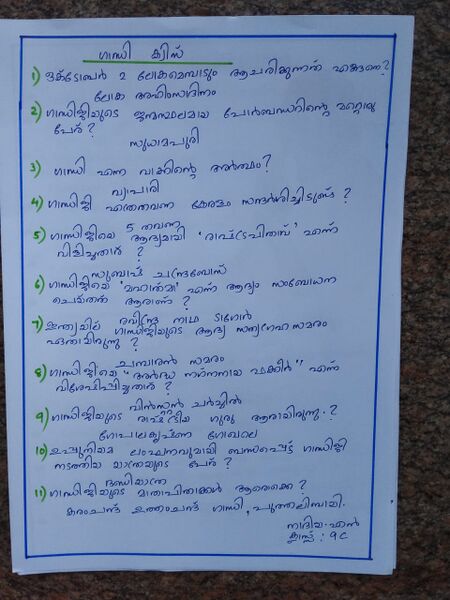 ഗാന്ധി ക്വിസ്
1) ഒക്ടോബർ 2 ലോകമെമ്പാടും ആചരിക്കുന്നത് എങ്ങനെ?
ലോക അഹിംസാദിനം
2) ഗാന്ധിജിയുടെ ജന്മസ്ഥലമായ പോർബന്ധറിന്റെ മറ്റൊരു
പേര് ?
സുധാമപുരി
3) ഗാന്ധി എന്ന വാക്കിന്റെ അർത്ഥം?
വ്യാപാരി
4) ഗാന്ധിജി എത്രതവണ കേരളം സന്ദർശിച്ചിട്ടുണ്ട് ?
5 തവണ
5) ഗാന്ധിജിയെ ആദ്യമായി 'രാഷ്ട്രപിതാവ്' എന്ന്
വിളിച്ചതാര് ?
സുബാഷ് ചന്ദ്രബോസ്
6) ഗാന്ധിജിയെ 'മഹാത്മാ' എന്ന് ആദ്യം സംബോധന
ചെയ്തത് ആരാണ് ?
രവീന്ദ്ര നാഥ ടാഗോർ
7) ഇന്ത്യയിൽ ഗാന്ധിജിയുടെ ആദ്യ സത്യഗ്രഹ സമരം
ഏതായിരുന്നു ?
ചമ്പാരൻ സമരം
8) ഗാന്ധിജിയെ "അർദ്ധ നഗ്നനായ ഫക്കീർ" എന്ന്
വിശേഷിപ്പിച്ചതാര് ?
വിൻസ്റ്റൺ ചർച്ചിൽ
9) ഗാന്ധിജിയുടെ രാഷ്ട്രീയ ഗുരു ആരായിരുന്നു ?
ഗോപാലകൃഷ്ണ ഗോഖലെ
10) ഉപ്പുനിയമ ലംഘനവുമായി ബന്ധപ്പെട്ട് ഗാന്ധിജി
നടത്തിയ യാത്രയുടെ പേര് ?
ദണ്ഡിയാത്ര
11) ഗാന്ധിജിയുടെ മാതാപിതാക്കൾ ആരൊക്കെ ?
കരംചന്ദ് ഉത്തംചന്ദ് ഗാന്ധി, പുത്തലിബായി.
നാദിയ.എൻ
ക്ലാസ്സ് : 9C